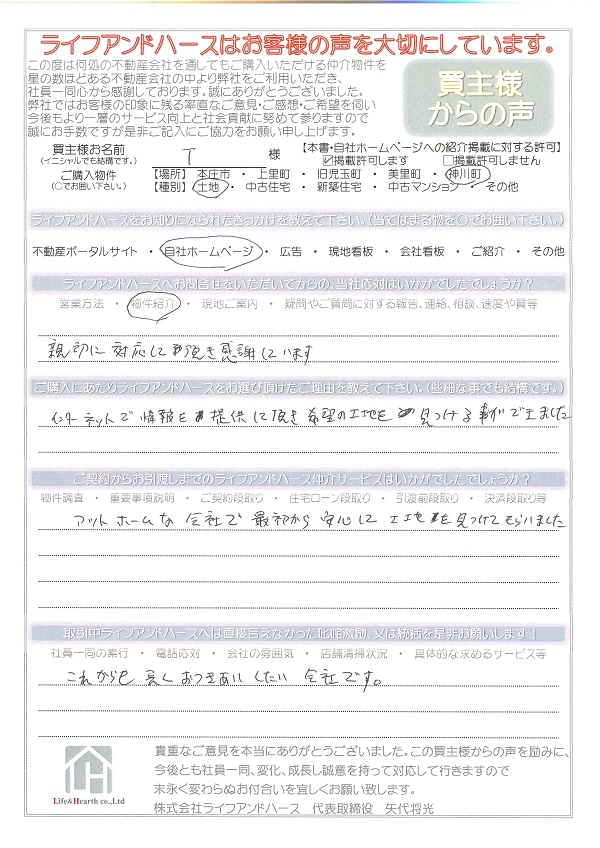 ライフアンドハースはお客様の声を大切にしています。
この度は何処の不動産会社を通してもご購入いただける仲介物件を
星の数ほどある不動産会社の中より弊社をご利用いただき、
社員一同心から感謝しております。誠にありがとうございました。
弊社ではお客様の印象に残る率直なご意見・ご感想・ご希望を伺い
今後もより一層のサービス向上と社会貢献に努めて参りますので
誠にお手数ですが是非ご記入にご協力をお願い申し上げます。
買主様
からの声
買主様お名前 T 様 【本書・自社ホームページへの紹介掲載に対する許可】
(イニシャルでも結構です。) ☑掲載許可します □掲載許可しません
ご購入物件 【場所】 本庄市 ・ 上里町 ・ 旧児玉町 ・ 美里町 ・ 神川町
(○でお囲い下さい。) 【種別】 土地 ・ 中古住宅 ・ 新築住宅 ・ 中古マンション ・ その他
ライフアンドハースをお知りになられたきっかけを教えて下さい。(当てはまる物を○でお囲い下さい。)
不動産ポータルサイト ・ 自社ホームページ ・ 広告 ・ 現地看板 ・ 会社看板 ・ ご紹介 ・ その他
ライフアンドハースへお問合せをいただいてからの、当社応対はいかがでしたでしょうか?
営業方法 ・ 物件紹介 ・ 現地ご案内 ・ 疑問やご質問に対する報告、連絡、相談、速度や質等
親切に対応して頂き感謝しています
ご購入にあたりライフアンドハースをお選び頂けたご理由を教えて下さい。(些細な事でも結構です。)
インターネットで情報を提供して頂き希望の土地を見つける事ができました
ご契約からお引渡しまでのライフアンドハース仲介サービスはいかがでしたでしょうか?
物件調査 ・ 重要事項説明 ・ ご契約段取り ・ 住宅ローン段取り ・ 引渡前段取り ・ 決済段取り等
アットホームな会社で最初から安心して土地を見つけてもらいました
取引中ライフアンドハースへは直接言えなかった叱咤激励、又は統括を是非お願いします!
社員一同の素行 ・ 電話応対 ・ 会社の雰囲気 ・ 店舗清掃状況 ・ 具体的な求めるサービス等
これからも長くおつきあいしたい会社です。
貴重なご意見を本当にありがとうございました。この買主様からの声を励みに、
今後とも社員一同、変化、成長し誠意を持って対応して行きますので
末永く変わらぬお付合いを宜しくお願い致します。
Life&Hearth co.,Ltd
株式会社ライフアンドハース 代表取締役 矢代将光